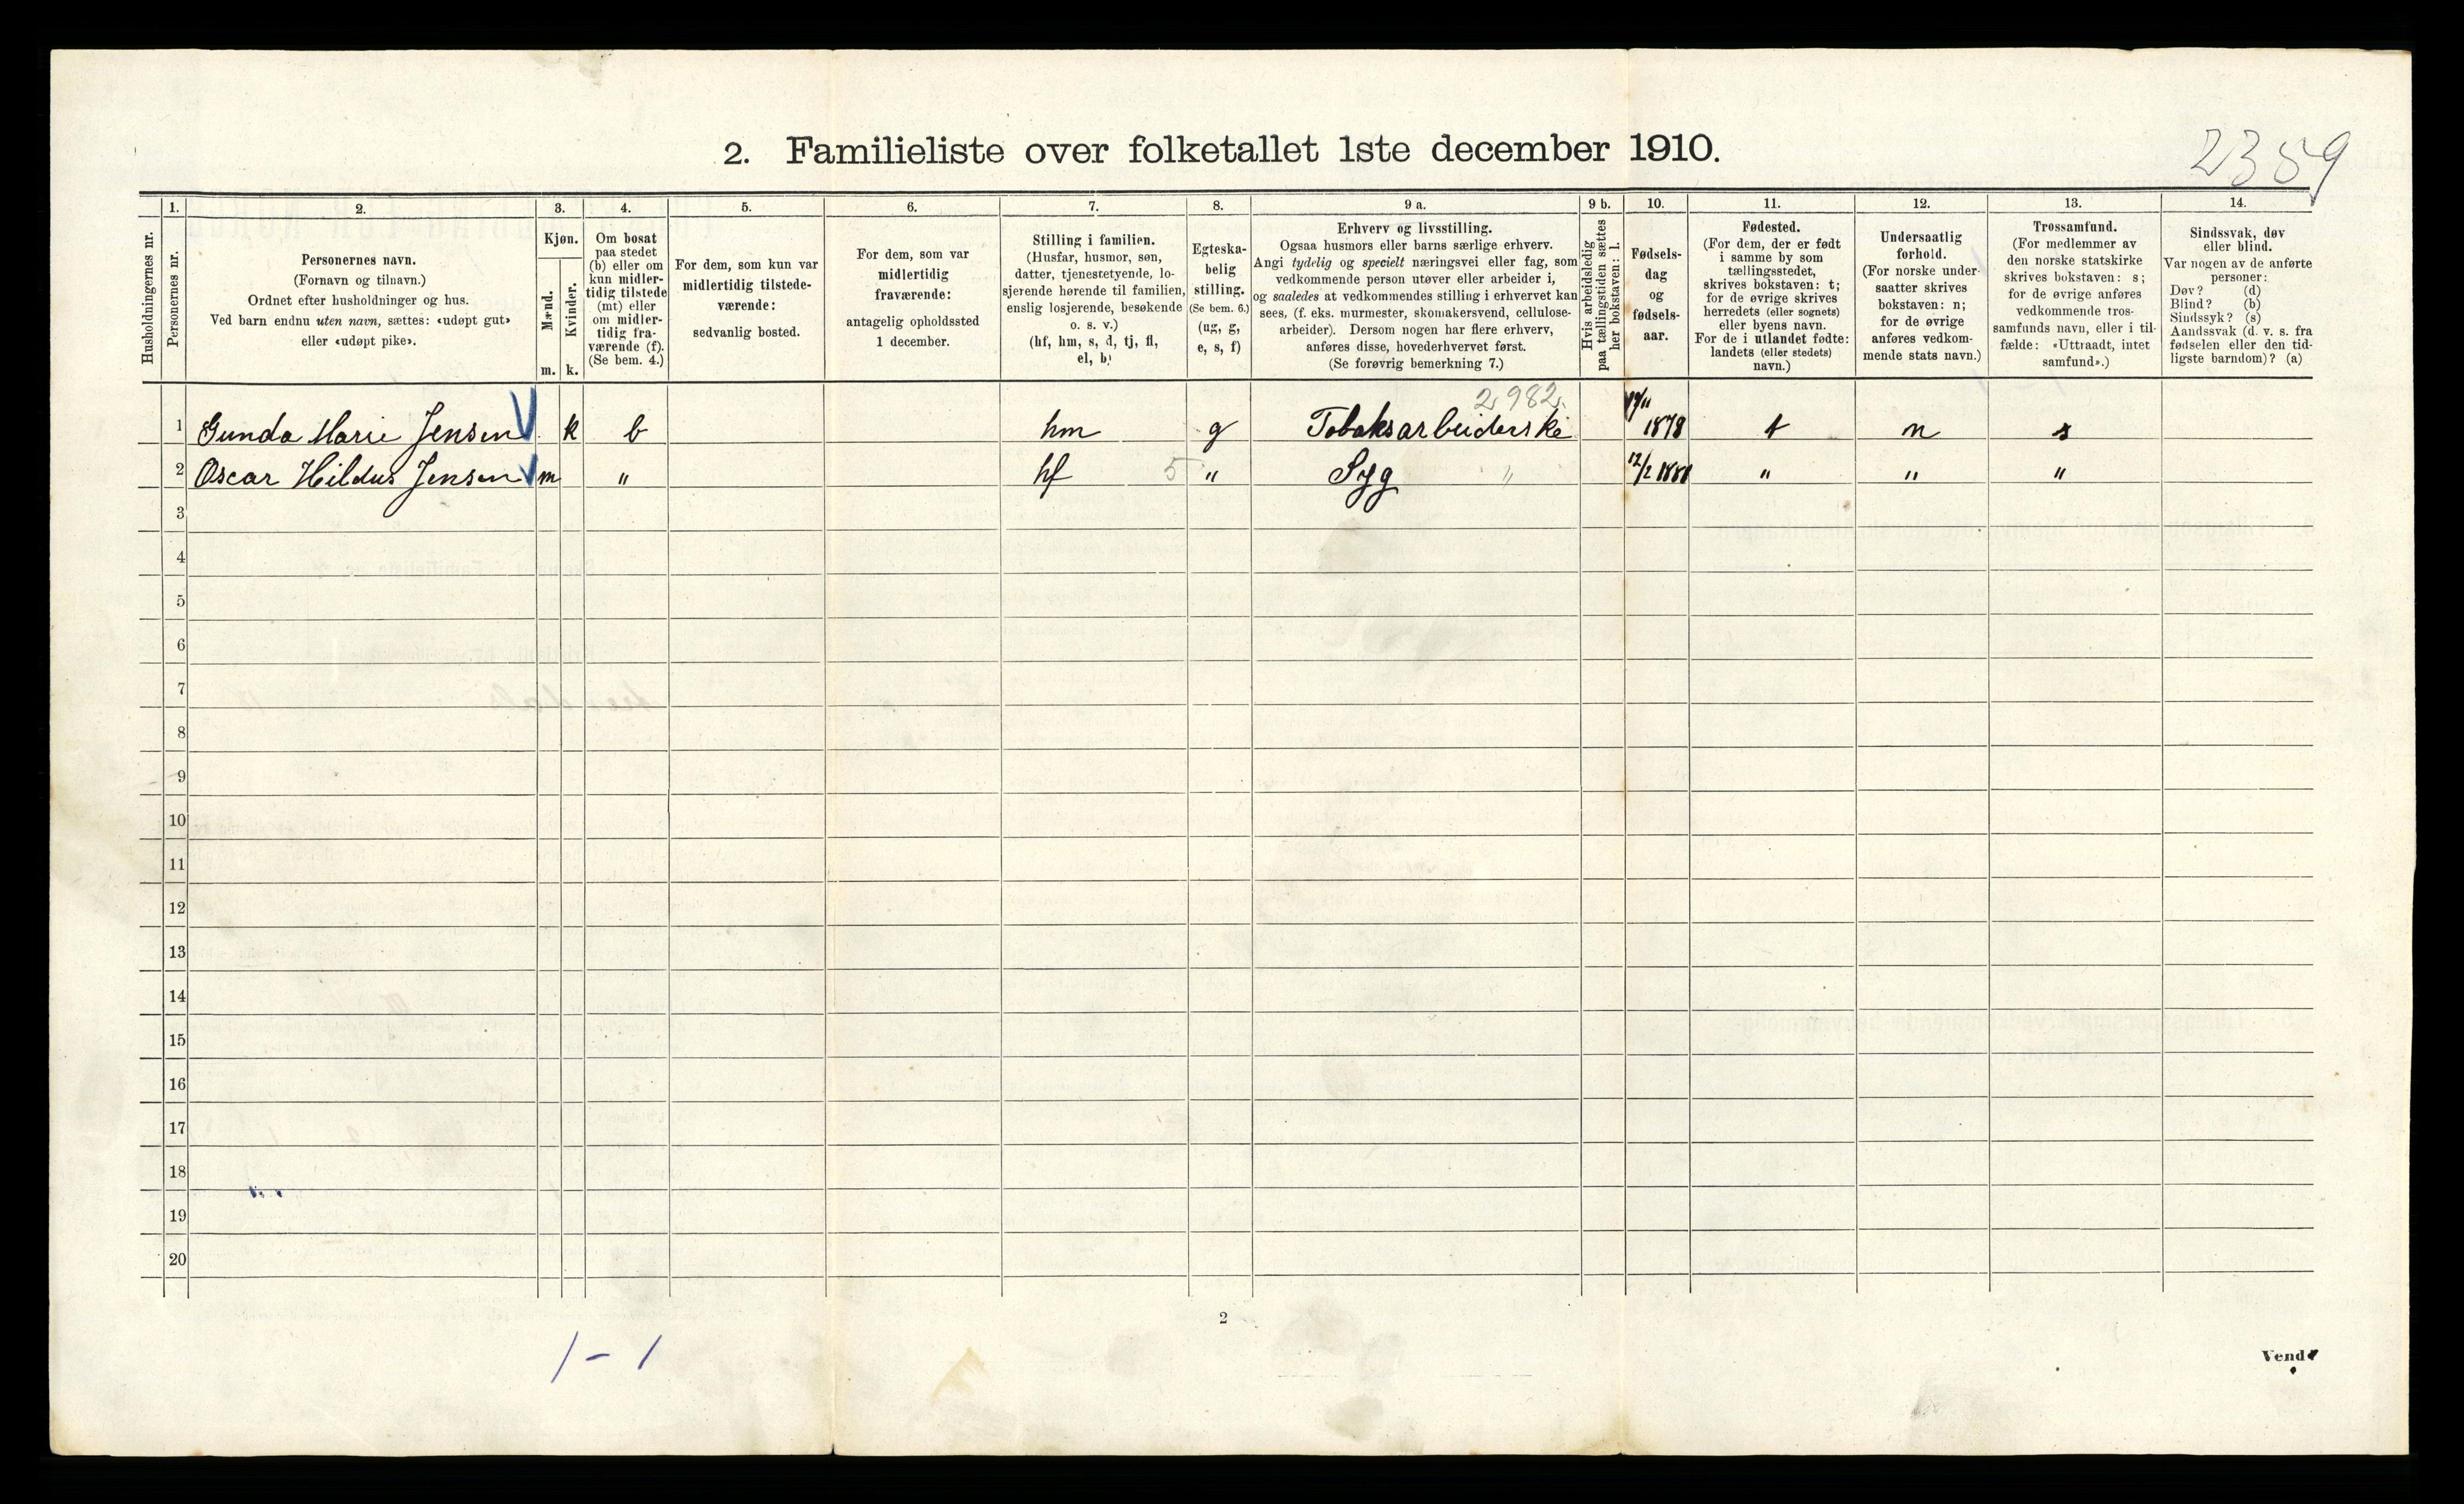 2359
2. Familieliste over folketallet 1ste december 1910.
Husholdningernes nr.
1.
Personernes nr.
2.
Personernes navn.
(Fornavn og tilnavn.)
Ordnet efter husholdninger og hus.
Ved barn endnu uten navn, sættes: «udøpt gut»
eller «udøpt pike».
3.
Kjøn.
Mænd.
Kvinder.
m. k.
4.
Om bosat
paa stedet
(b) eller om
kun midler-
tidig tilstede
(mt) eller
om midler-
tidig fra-
værende (f).
(Se bem. 4.)
5.
For dem, som kun var
midlertidig tilstede-
værende:
sedvanlig bosted.
6.
For dem, som var
midlertidig
fraværende:
antagelig opholdssted
1 december.
7.
Stilling i familien.
(Husfar, husmor, søn,
datter, tjenestetyende, lo-
sjerende hørende til familien,
enslig losjerende, besøkende
o. s. v.)
(hf, hm, s, d, tj, fl,
el, b)
8.
Egteska-
belig
stilling.
(Se bem. 6.)
(ug, g,
e, s, f)
9 a.
Erhverv og livsstilling.
Ogsaa husmors eller barns særlige erhverv.
Angi tydelig og specielt næringsvei eller fag, som
vedkommende person utøver eller arbeider i,
og saaledes at vedkommendes stilling i erhvervet kan
sees, (f. eks. murmester, skomakersvend, cellulose-
arbeider). Dersom nogen har flere erhverv,
anføres disse, hovederhvervet først.
(Se forøvrig bemerkning 7.)
9 b.
Hvis arbeidsledig
paa tællingstiden sættes
her bokstaven: l.
10.
Fødsels-
dag
og
fødsels-
aar.
11.
Fødested.
(For dem, der er født
i samme by som
tællingsstedet,
skrives bokstaven: t;
for de øvrige skrives
herredets (eller sognets)
eller byens navn.
For de i utlandet fødte:
landets (eller stedets)
navn.)
12.
Undersaatlig
forhold.
(For norske under-
saatter skrives
bokstaven: n;
for de øvrige
anføres vedkom-
mende stats navn.)
13.
Trossamfund.
(For medlemmer av
den norske statskirke
skrives bokstaven: s;
for de øvrige anføres
vedkommende tros-
samfunds navn, eller i til-
fælde: «Uttraadt, intet
samfund».)
14.
Sindssvak, døv
eller blind.
Var nogen av de anførte
personer:
Døv? (d)
Blind? (b)
Sindssyk? (s)
Aandssvak (d. v. s. fra
fødselen eller den tid-
ligste barndom)? (a)
2982.
1 Gunda Marie Jensen k b hm g Tobaksarbeiderske 1878 t n s
2 Oscar Hildus Jensen m " hf 5 " Syg " 12/2 1881 " " "
3
4
5
6
7
8
9
10
11
12
13
14
15
16
17
18
19
20
2
1 - 1
Vend